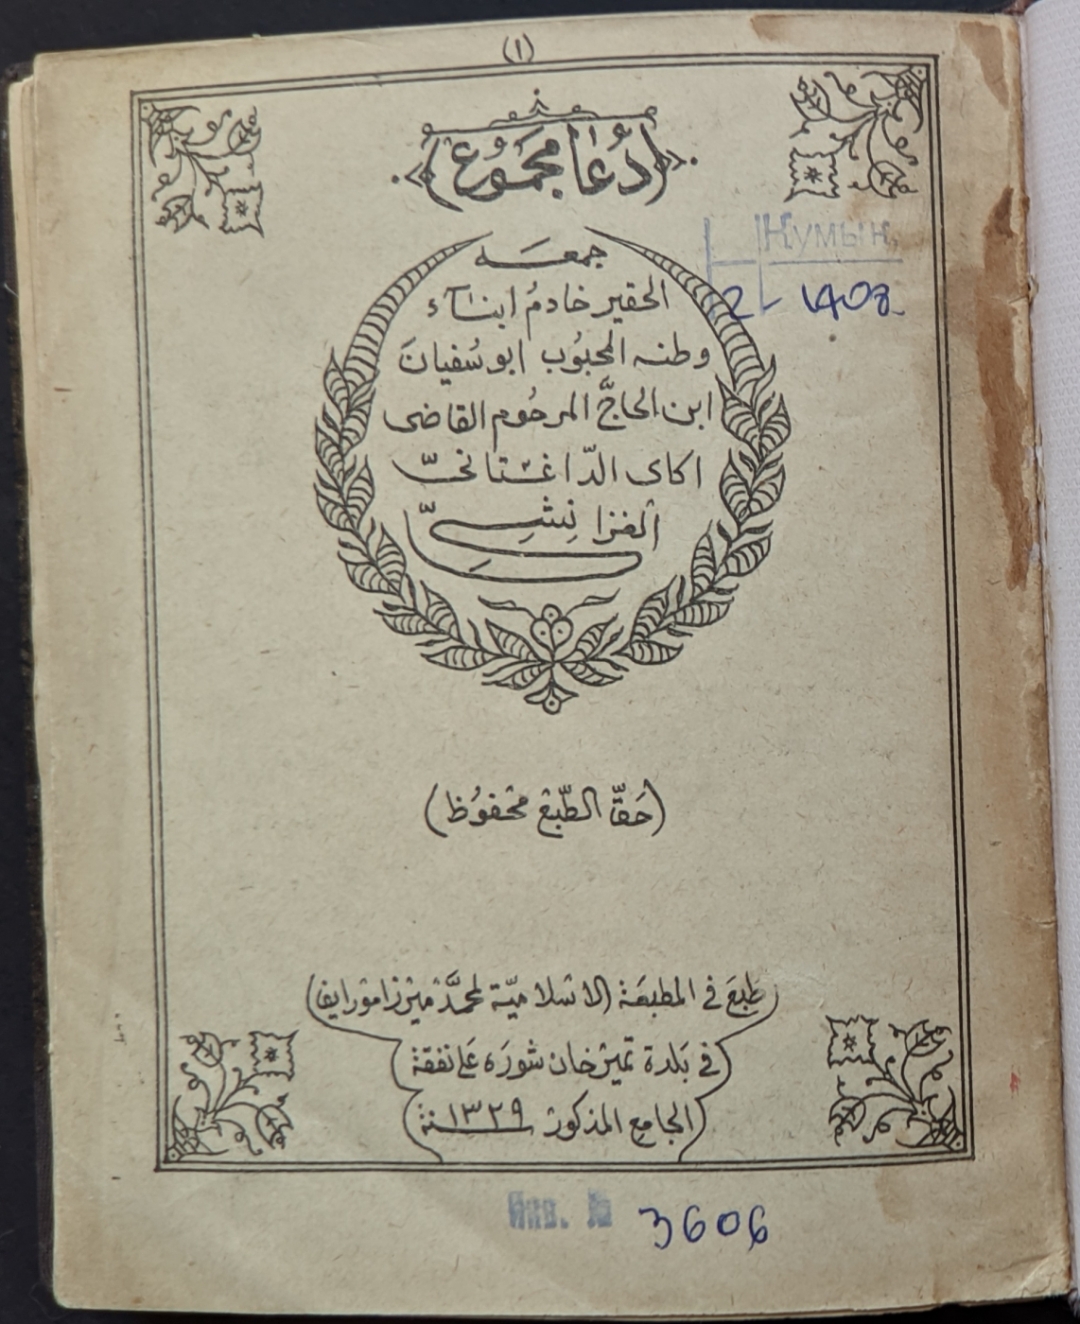 (١)
(دُعَا مَجمُوعْ)
جمعه
الحقير خادمُ ابنآء
وطنه المحبُوب ابو سُفيانَ
ابن الحاجّ المرحُوم القاضى
اكاى الدّاغستانىّ
الغزانِشِىّ
Кумык.
2 1408
(حَقّ الطّبْع مَحْفوُظ)
طبعَ فى المطبعَة (الاسْلاميّة لمحمّدْ ميرْزا موْرايف)
فى بَلدة تميرْخان شوُرَه عَلى نفقة
الجامع المذكورْ سنة ١٣٢٩
Инв. № 3606